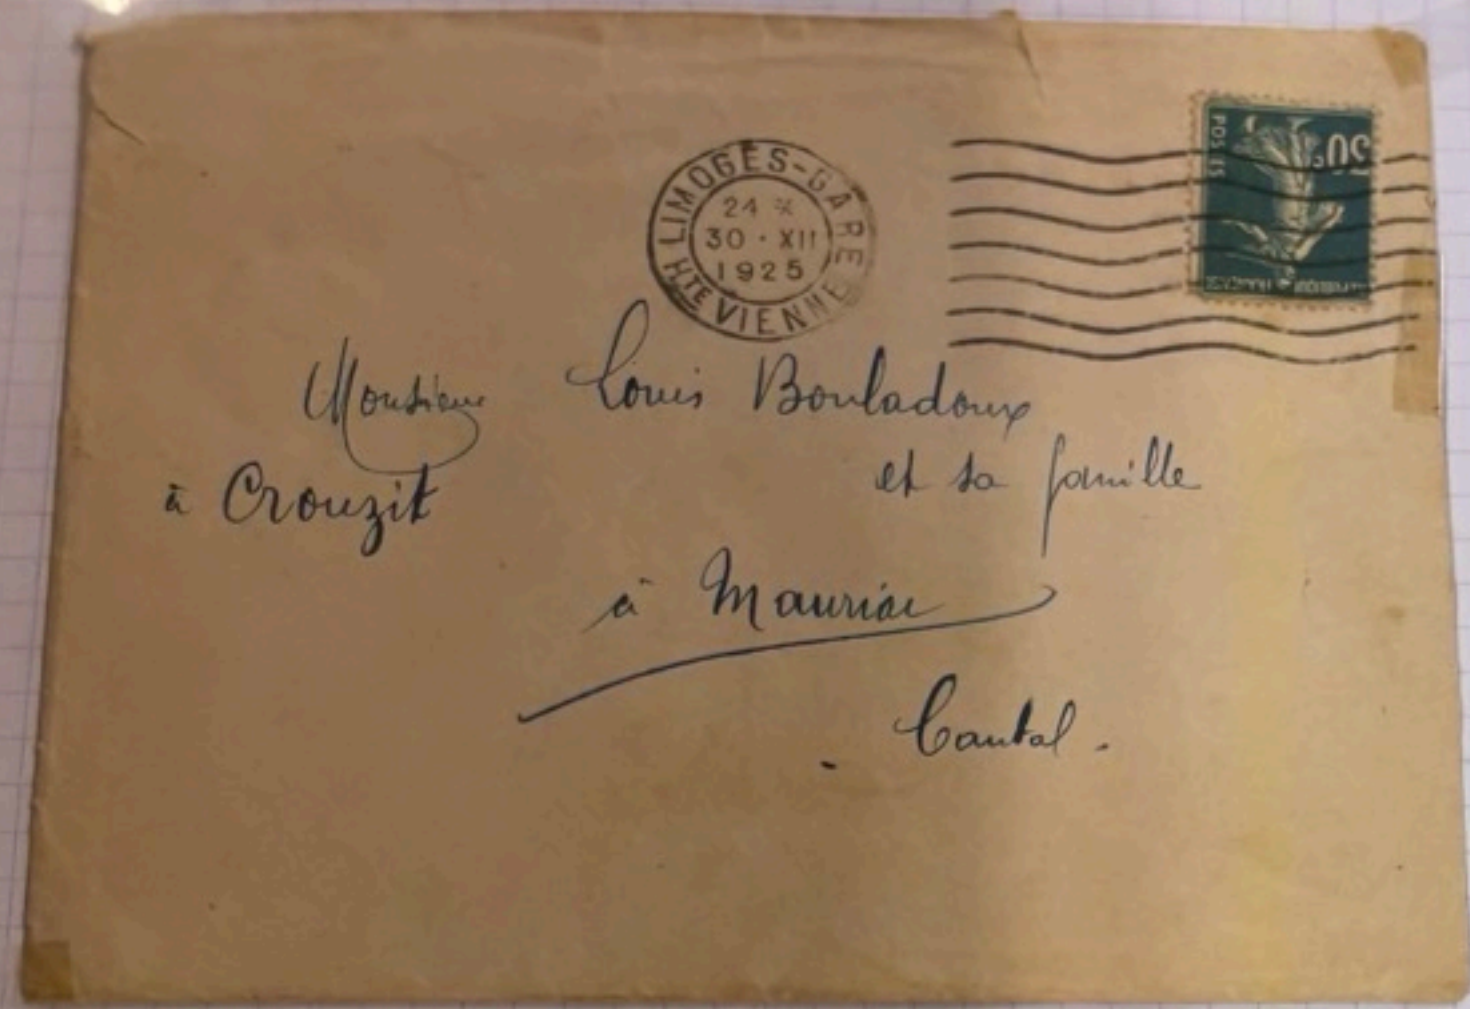 LIMOGES-GARE
24 *
30 · XII
1925
HTE VIENNE
30c
POSTES
REPUBLIQUE FRANCAISE
Monsieur Louis Bouladoux
et sa famille
à Crouzit
à Mauriac
Cantal.